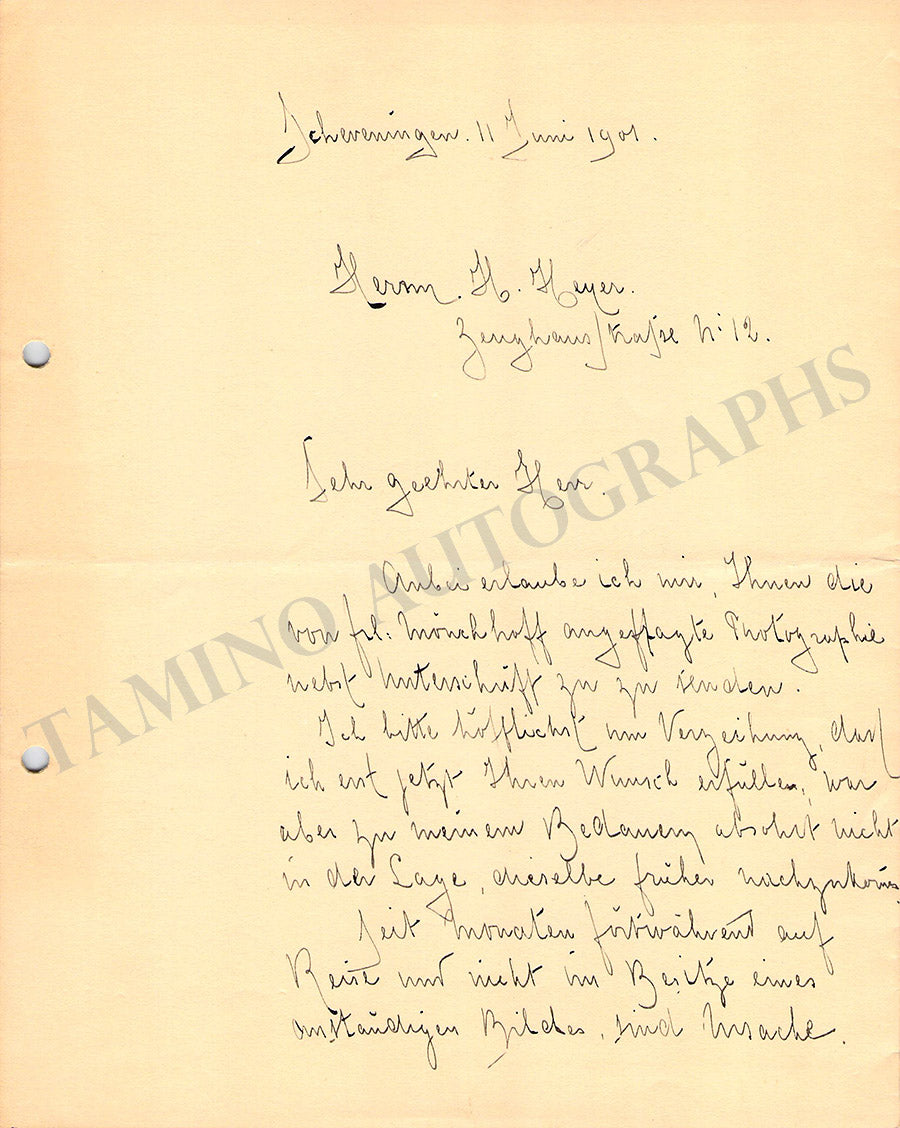 Scheveningen. 11 Juni 1901.
Herrn. H. Heyer.
Zeughausstraße N: 12.
Sehr geehrter Herr.
Anbei erlaube ich mir, Ihnen die
von frl: Mönchhoff angefragte Photographie
nebst Unterschrift zu zu senden.
Ich bitte höfflichst um Verzeihung, dass
ich erst jetzt Ihren Wunsch erfülle, war
aber zu meinem Bedauern absolut nicht
in der Lage, dieselbe früher nachzukom̅
Seit Monaten fortwährend auf
Reise und nicht im Besitze eines
anständigen Bildes, sind Ursache.
TAMINO AUTOGRAPHS